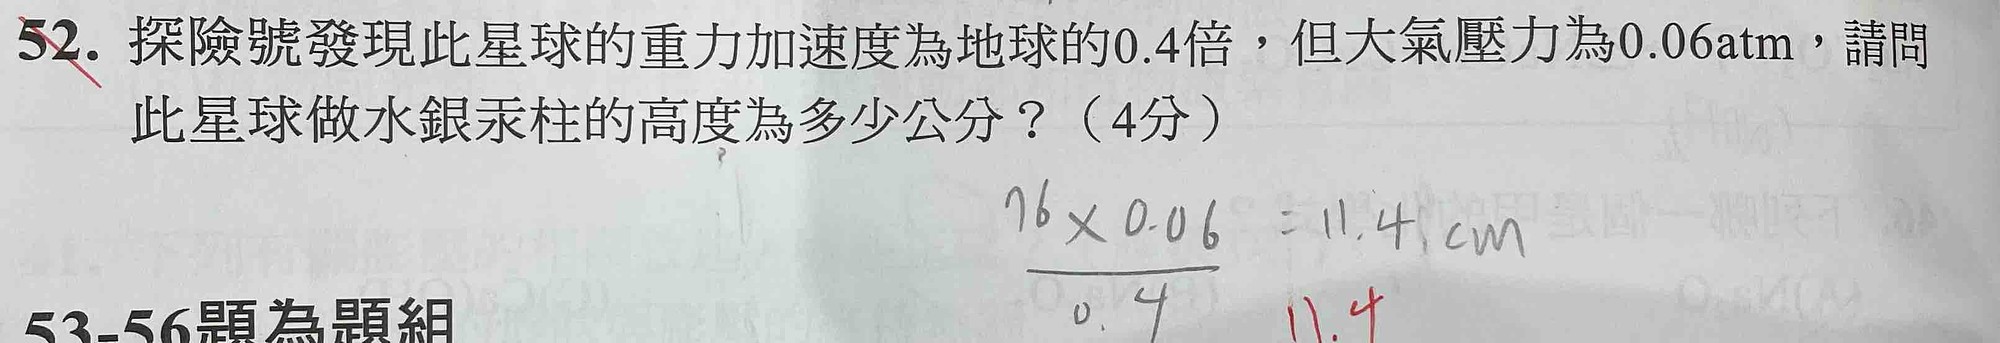 52. 探險號發現此星球的重力加速度為地球的0.4倍，但大氣壓力為0.06atm，請問
此星球做水銀汞柱的高度為多少公分？（4分）
76 × 0.06 = 11.4 cm
0.4
11.4
53-56題為題組